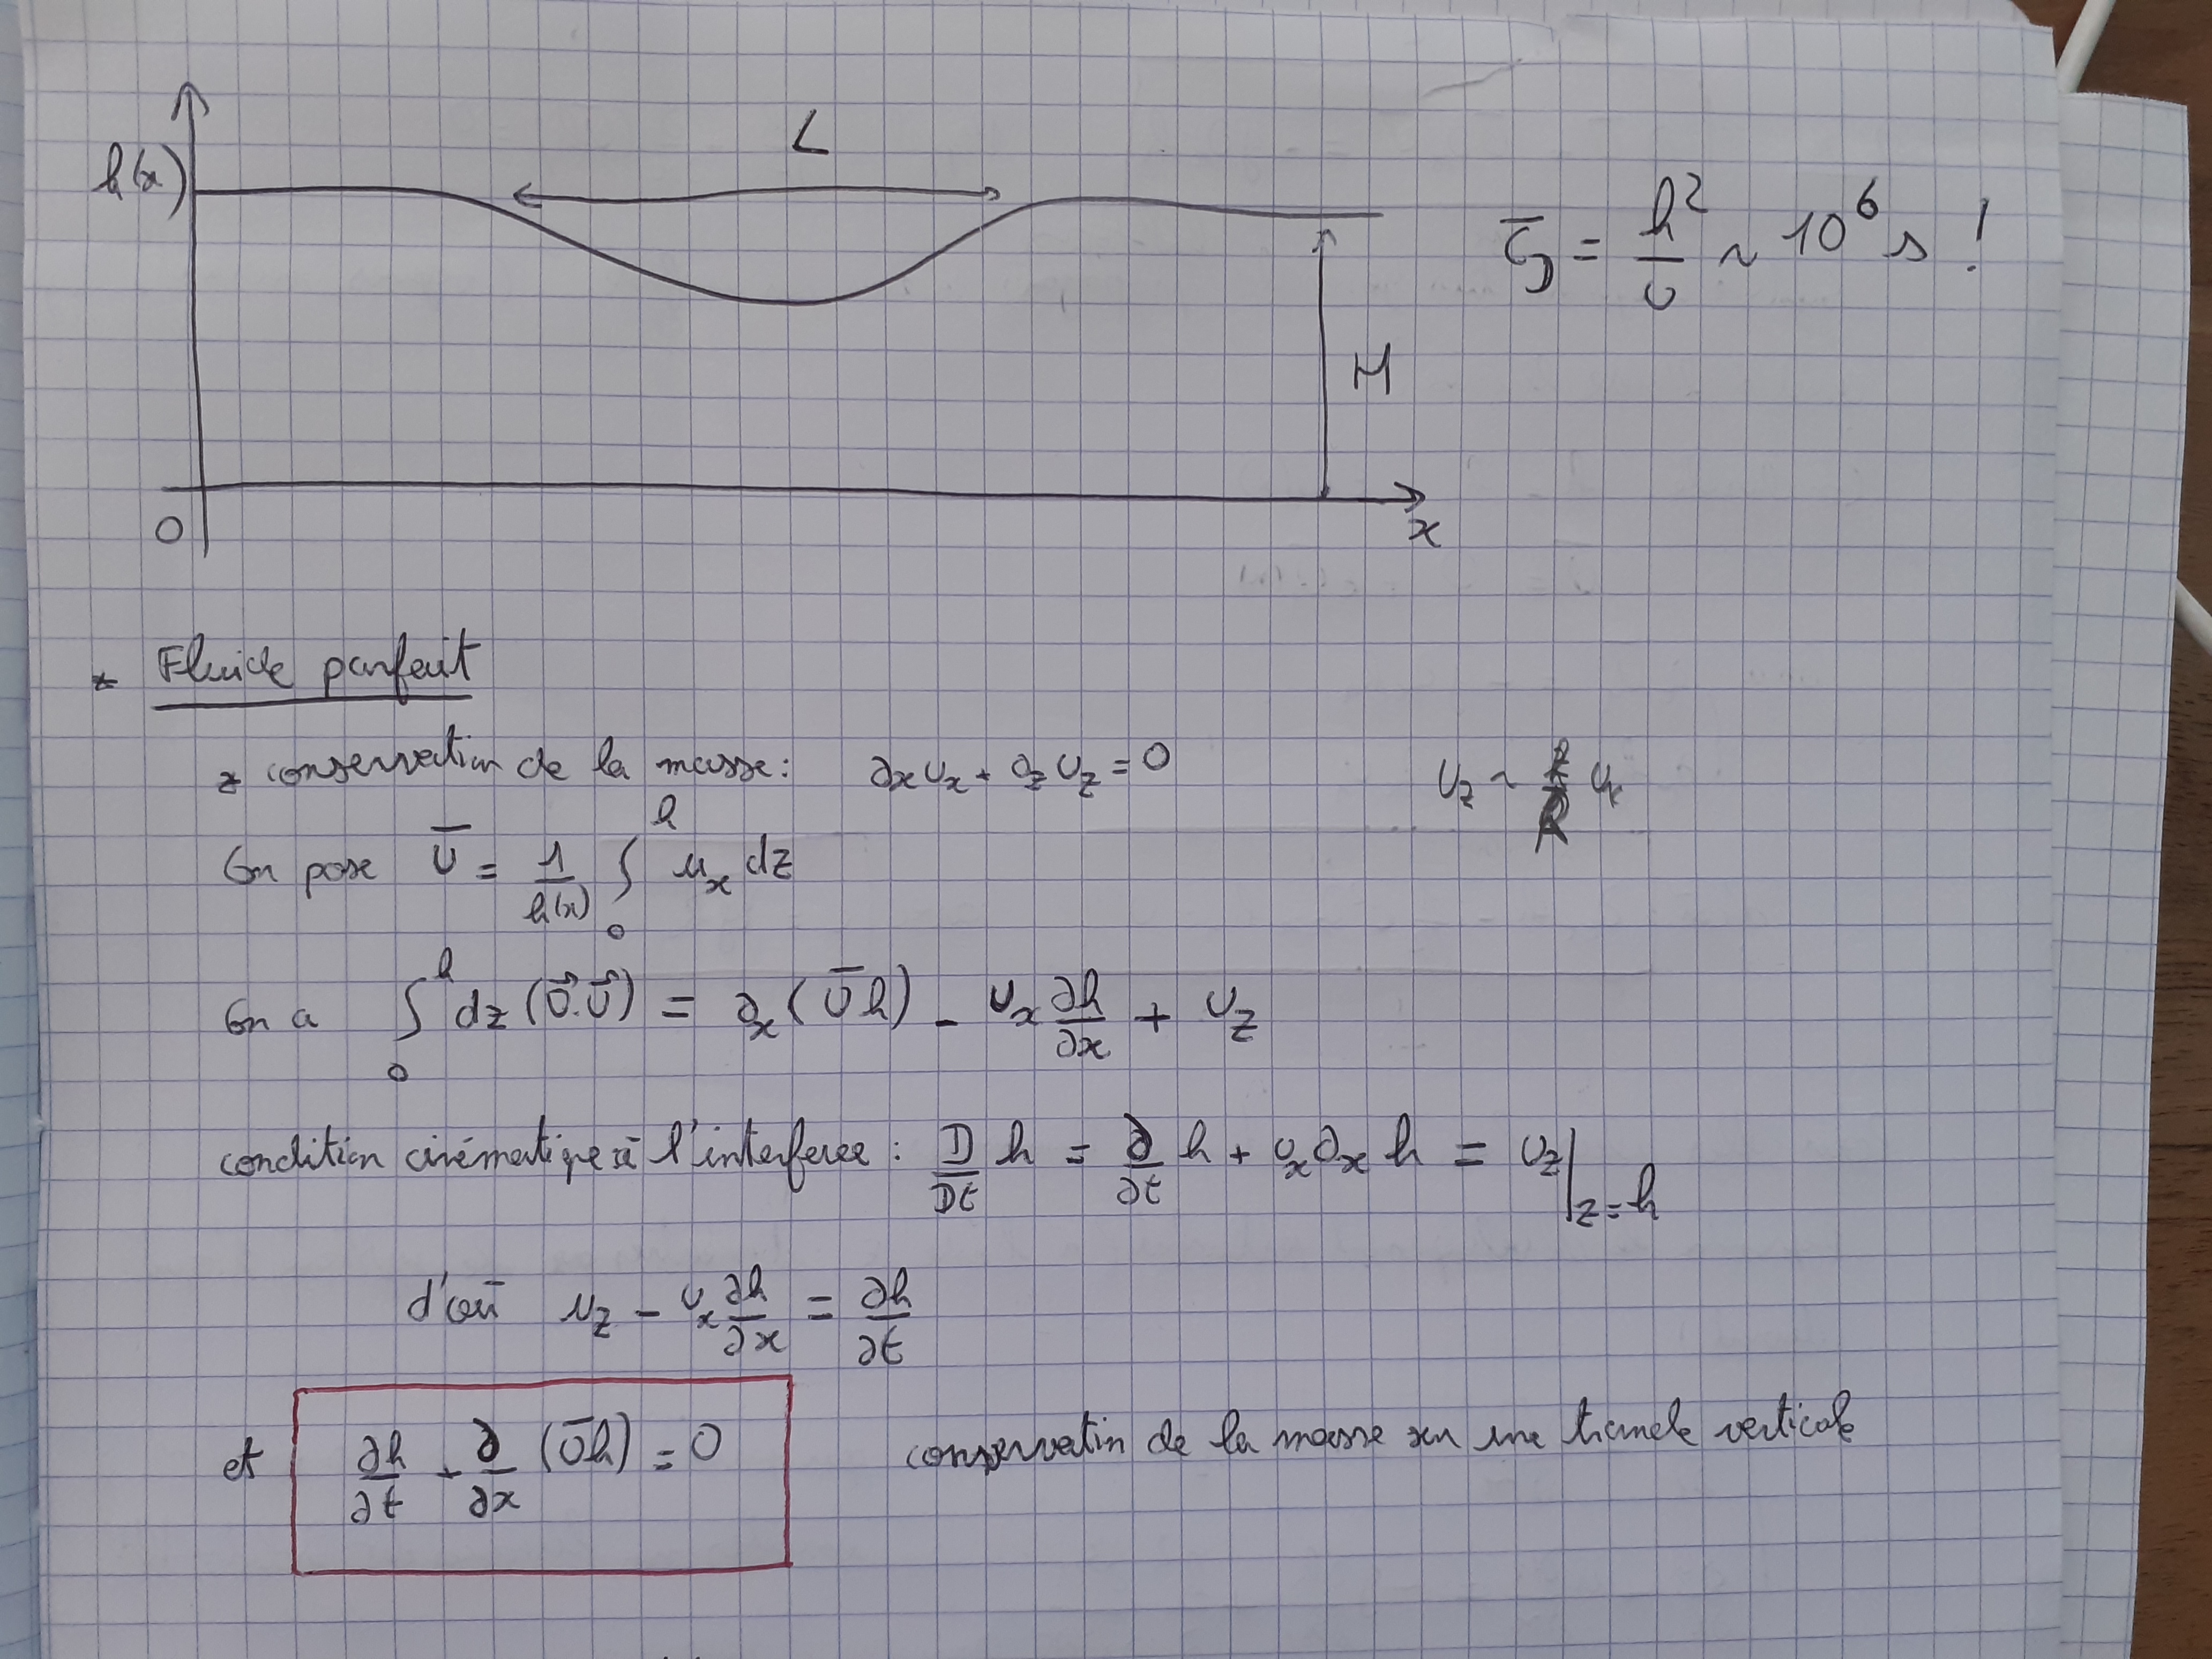 h(x)
L
H
O
x
τ = h²/υ ~ 10⁶ s !
* Fluide parfait
* conservation de la masse : ∂x υx + ∂z υz = 0
υz ~ υx
On pose Ū = 1/h(x) ∫₀ʰ ux dz
On a ∫₀ʰ dz (∇⃗.υ⃗) = ∂x (Ūh) - υx ∂h/∂x + υz
condition cinématique à l'interface : D/Dt h = ∂/∂t h + υx ∂x h = υz|z=h
d'où uz - υx ∂h/∂x = ∂h/∂t
et ∂h/∂t + ∂/∂x (Ūh) = 0 conservation de la masse sur une tranche verticale